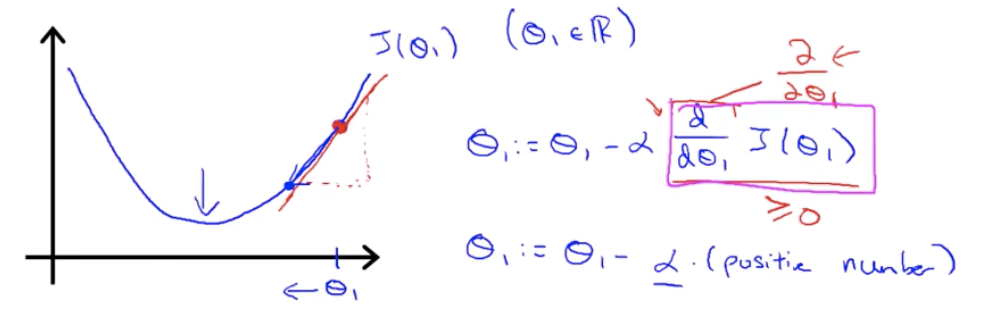 J(θ₁) (θ₁ ∈ ℝ)
∂/∂θ₁
θ₁ := θ₁ - α d/dθ₁ J(θ₁)
≥ 0
θ₁ := θ₁ - α · (positive number)
← θ₁